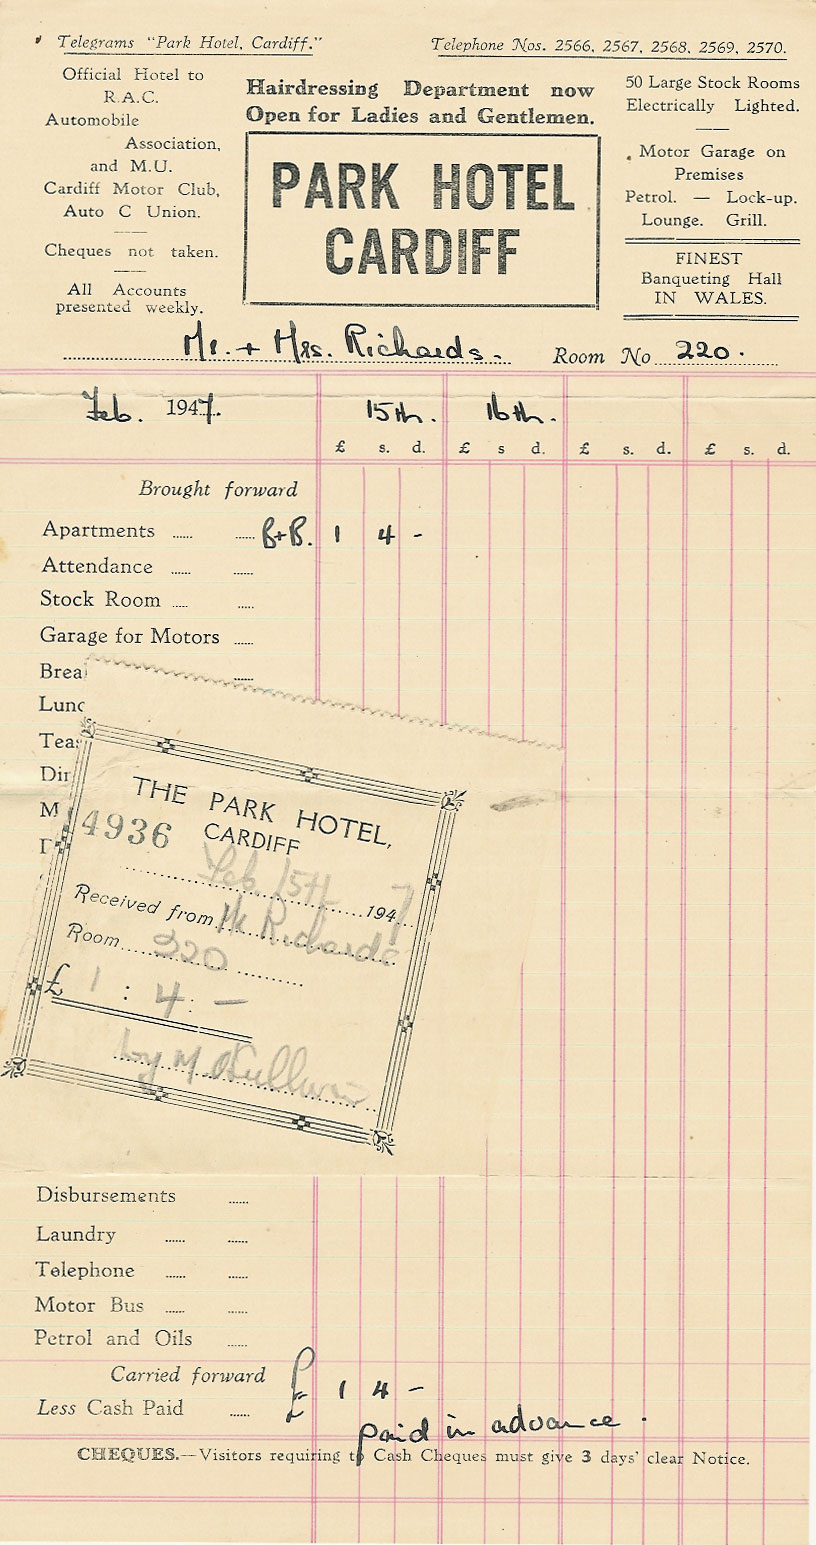 Telegrams "Park Hotel, Cardiff."
Telephone Nos. 2566, 2567, 2568, 2569, 2570.
Official Hotel to
R.A.C.
Automobile
Association,
and M.U.
Cardiff Motor Club,
Auto C Union.
Cheques not taken.
All Accounts
presented weekly.
Hairdressing Department now
Open for Ladies and Gentlemen.
PARK HOTEL
CARDIFF
50 Large Stock Rooms
Electrically Lighted.
Motor Garage on
Premises
Petrol. — Lock-up.
Lounge. Grill.
FINEST
Banqueting Hall
IN WALES.
Mr. + Mrs. Richards. Room No 220.
Feb. 1947. 15th. 16th.
£ s. d. £ s d. £ s. d. £ s. d.
Brought forward
Apartments B+B. 1 4 -
Attendance
Stock Room
Garage for Motors
Brea
Lunc
Tea
Din
M
THE PARK HOTEL,
4936 CARDIFF
Feb. 15th 1947
Received from Mr Richards
Room 220
£ 1 : 4 : -
by M
Disbursements
Laundry
Telephone
Motor Bus
Petrol and Oils
Carried forward £ 1 4 -
Less Cash Paid
paid in advance.
CHEQUES.—Visitors requiring to Cash Cheques must give 3 days' clear Notice.